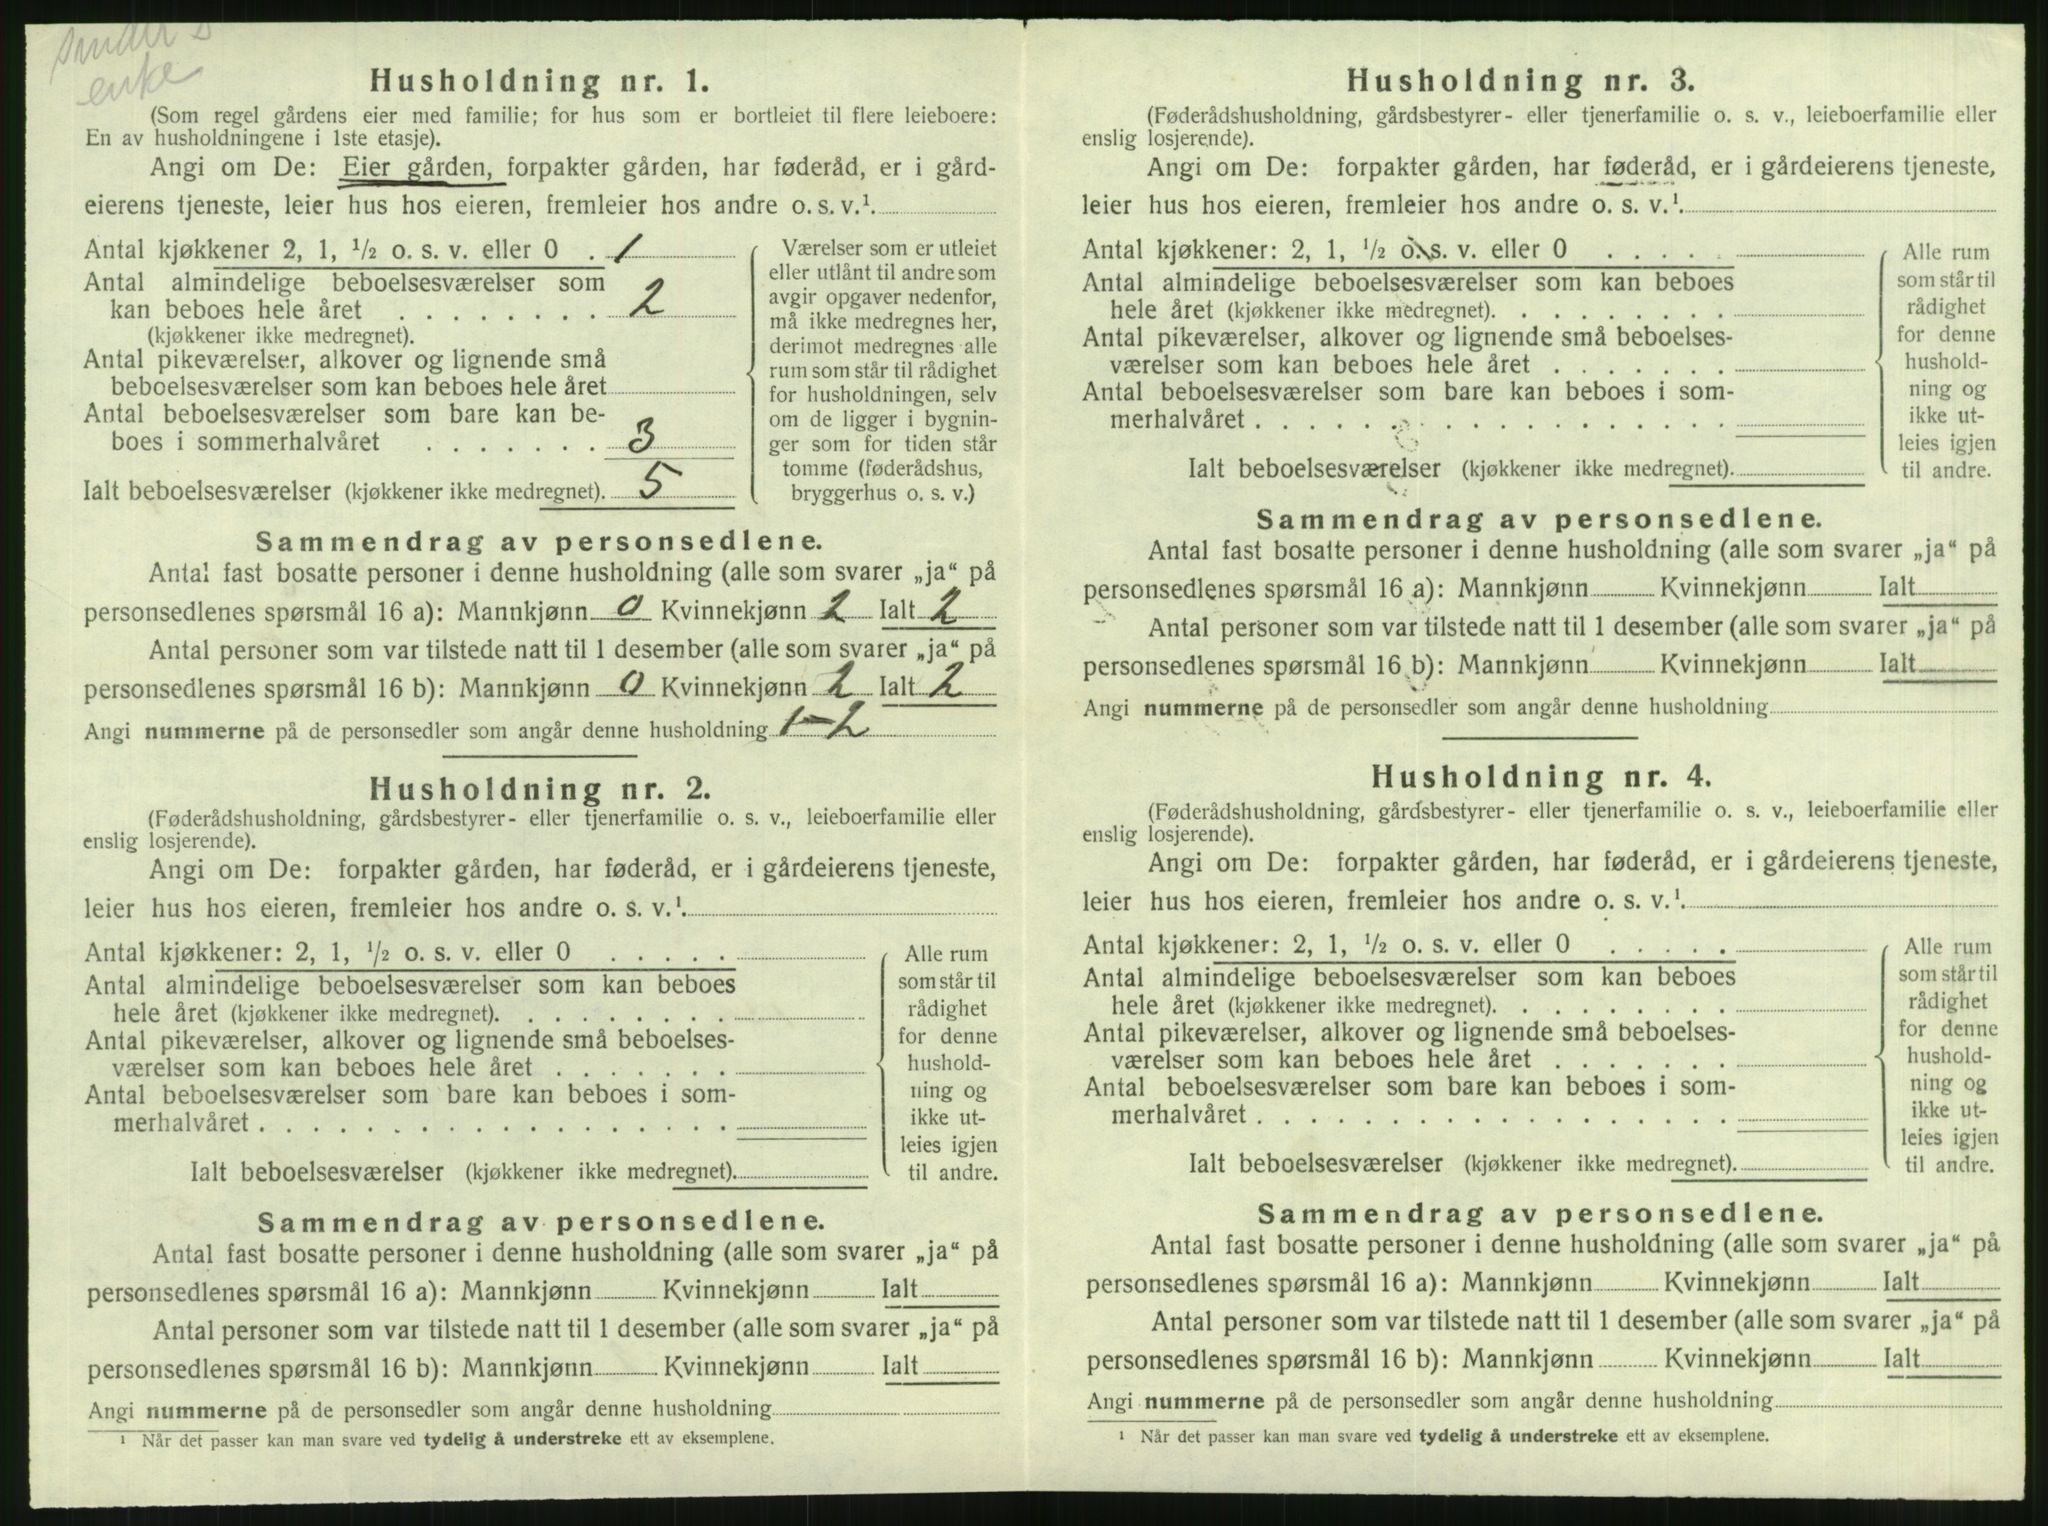 enke
Husholdning nr. 1.
(Som regel gårdens eier med familie; for hus som er bortleiet til flere leieboere:
En av husholdningene i 1ste etasje).
Angi om De: Eier gården, forpakter gården, har føderåd, er i gård-
eierens tjeneste, leier hus hos eieren, fremleier hos andre o. s. v.¹.
Antal kjøkkener 2, 1, ½ o. s. v. eller 0 . 1
Antal almindelige beboelsesværelser som
kan beboes hele året . . . . . . . . 2
(kjøkkener ikke medregnet).
Antal pikeværelser, alkover og lignende små
beboelsesværelser som kan beboes hele året
Antal beboelsesværelser som bare kan be-
boes i sommerhalvåret . . . . . . . 3
Ialt beboelsesværelser (kjøkkener ikke medregnet). 5
Værelser som er utleiet
eller utlånt til andre som
avgir opgaver nedenfor,
må ikke medregnes her,
derimot medregnes alle
rum som står til rådighet
for husholdningen, selv
om de ligger i bygnin-
ger som for tiden står
tomme (føderådshus,
bryggerhus o. s. v.)
Sammendrag av personsedlene.
Antal fast bosatte personer i denne husholdning (alle som svarer „ja“ på
personsedlenes spørsmål 16 a): Mannkjønn 0 Kvinnekjønn 2 Ialt 2
Antal personer som var tilstede natt til 1 desember (alle som svarer „ja“ på
personsedlenes spørsmål 16 b): Mannkjønn 0 Kvinnekjønn 2 Ialt 2
Angi nummerne på de personsedler som angår denne husholdning 1-2
Husholdning nr. 2.
(Føderådshusholdning, gårdsbestyrer- eller tjenerfamilie o. s. v., leieboerfamilie eller
enslig losjerende).
Angi om De: forpakter gården, har føderåd, er i gårdeierens tjeneste,
leier hus hos eieren, fremleier hos andre o. s. v.¹.
Antal kjøkkener: 2, 1, ½ o. s. v. eller 0 . . . . .
Antal almindelige beboelsesværelser som kan beboes
hele året (kjøkkener ikke medregnet). . . . . . . . .
Antal pikeværelser, alkover og lignende små beboelses-
værelser som kan beboes hele året . . . . . . .
Antal beboelsesværelser som bare kan beboes i som-
merhalvåret . . . . . . . . . . . . . . . . . .
Ialt beboelsesværelser (kjøkkener ikke medregnet).
Alle rum
som står til
rådighet
for denne
hushold-
ning og
ikke ut-
leies igjen
til andre.
Sammendrag av personsedlene.
Antal fast bosatte personer i denne husholdning (alle som svarer „ja“ på
personsedlenes spørsmål 16 a): Mannkjønn Kvinnekjønn Ialt
Antal personer som var tilstede natt til 1 desember (alle som svarer „ja“ på
personsedlenes spørsmål 16 b): Mannkjønn Kvinnekjønn Ialt
Angi nummerne på de personsedler som angår denne husholdning
¹ Når det passer kan man svare ved tydelig å understreke ett av eksemplene.
Husholdning nr. 3.
(Føderådshusholdning, gårdsbestyrer- eller tjenerfamilie o. s. v., leieboerfamilie eller
enslig losjerende).
Angi om De: forpakter gården, har føderåd, er i gårdeierens tjeneste,
leier hus hos eieren, fremleier hos andre o. s. v.¹.
Antal kjøkkener: 2, 1, ½ o. s. v. eller 0 . . . . .
Antal almindelige beboelsesværelser som kan beboes
hele året (kjøkkener ikke medregnet). . . . . . . . .
Antal pikeværelser, alkover og lignende små beboelses-
værelser som kan beboes hele året . . . . . . .
Antal beboelsesværelser som bare kan beboes i som-
merhalvåret . . . . . . . . . . . . . . . . . .
Ialt beboelsesværelser (kjøkkener ikke medregnet).
Alle rum
som står til
rådighet
for denne
hushold-
ning og
ikke ut-
leies igjen
til andre.
Sammendrag av personsedlene.
Antal fast bosatte personer i denne husholdning (alle som svarer „ja“ på
personsedlenes spørsmål 16 a): Mannkjønn Kvinnekjønn Ialt
Antal personer som var tilstede natt til 1 desember (alle som svarer „ja“ på
personsedlenes spørsmål 16 b): Mannkjønn Kvinnekjønn Ialt
Angi nummerne på de personsedler som angår denne husholdning
Husholdning nr. 4.
(Føderådshusholdning, gårdsbestyrer- eller tjenerfamilie o. s. v., leieboerfamilie eller
enslig losjerende).
Angi om De: forpakter gården, har føderåd, er i gårdeierens tjeneste,
leier hus hos eieren, fremleier hos andre o. s. v.¹.
Antal kjøkkener: 2, 1, ½ o. s. v. eller 0 . . . . .
Antal almindelige beboelsesværelser som kan beboes
hele året (kjøkkener ikke medregnet). . . . . . . . .
Antal pikeværelser, alkover og lignende små beboelses-
værelser som kan beboes hele året . . . . . . .
Antal beboelsesværelser som bare kan beboes i som-
merhalvåret . . . . . . . . . . . . . . . . . .
Ialt beboelsesværelser (kjøkkener ikke medregnet).
Alle rum
som står til
rådighet
for denne
hushold-
ning og
ikke ut-
leies igjen
til andre.
Sammendrag av personsedlene.
Antal fast bosatte personer i denne husholdning (alle som svarer „ja“ på
personsedlenes spørsmål 16 a): Mannkjønn Kvinnekjønn Ialt
Antal personer som var tilstede natt til 1 desember (alle som svarer „ja“ på
personsedlenes spørsmål 16 b): Mannkjønn Kvinnekjønn Ialt
Angi nummerne på de personsedler som angår denne husholdning
¹ Når det passer kan man svare ved tydelig å understreke ett av eksemplene.